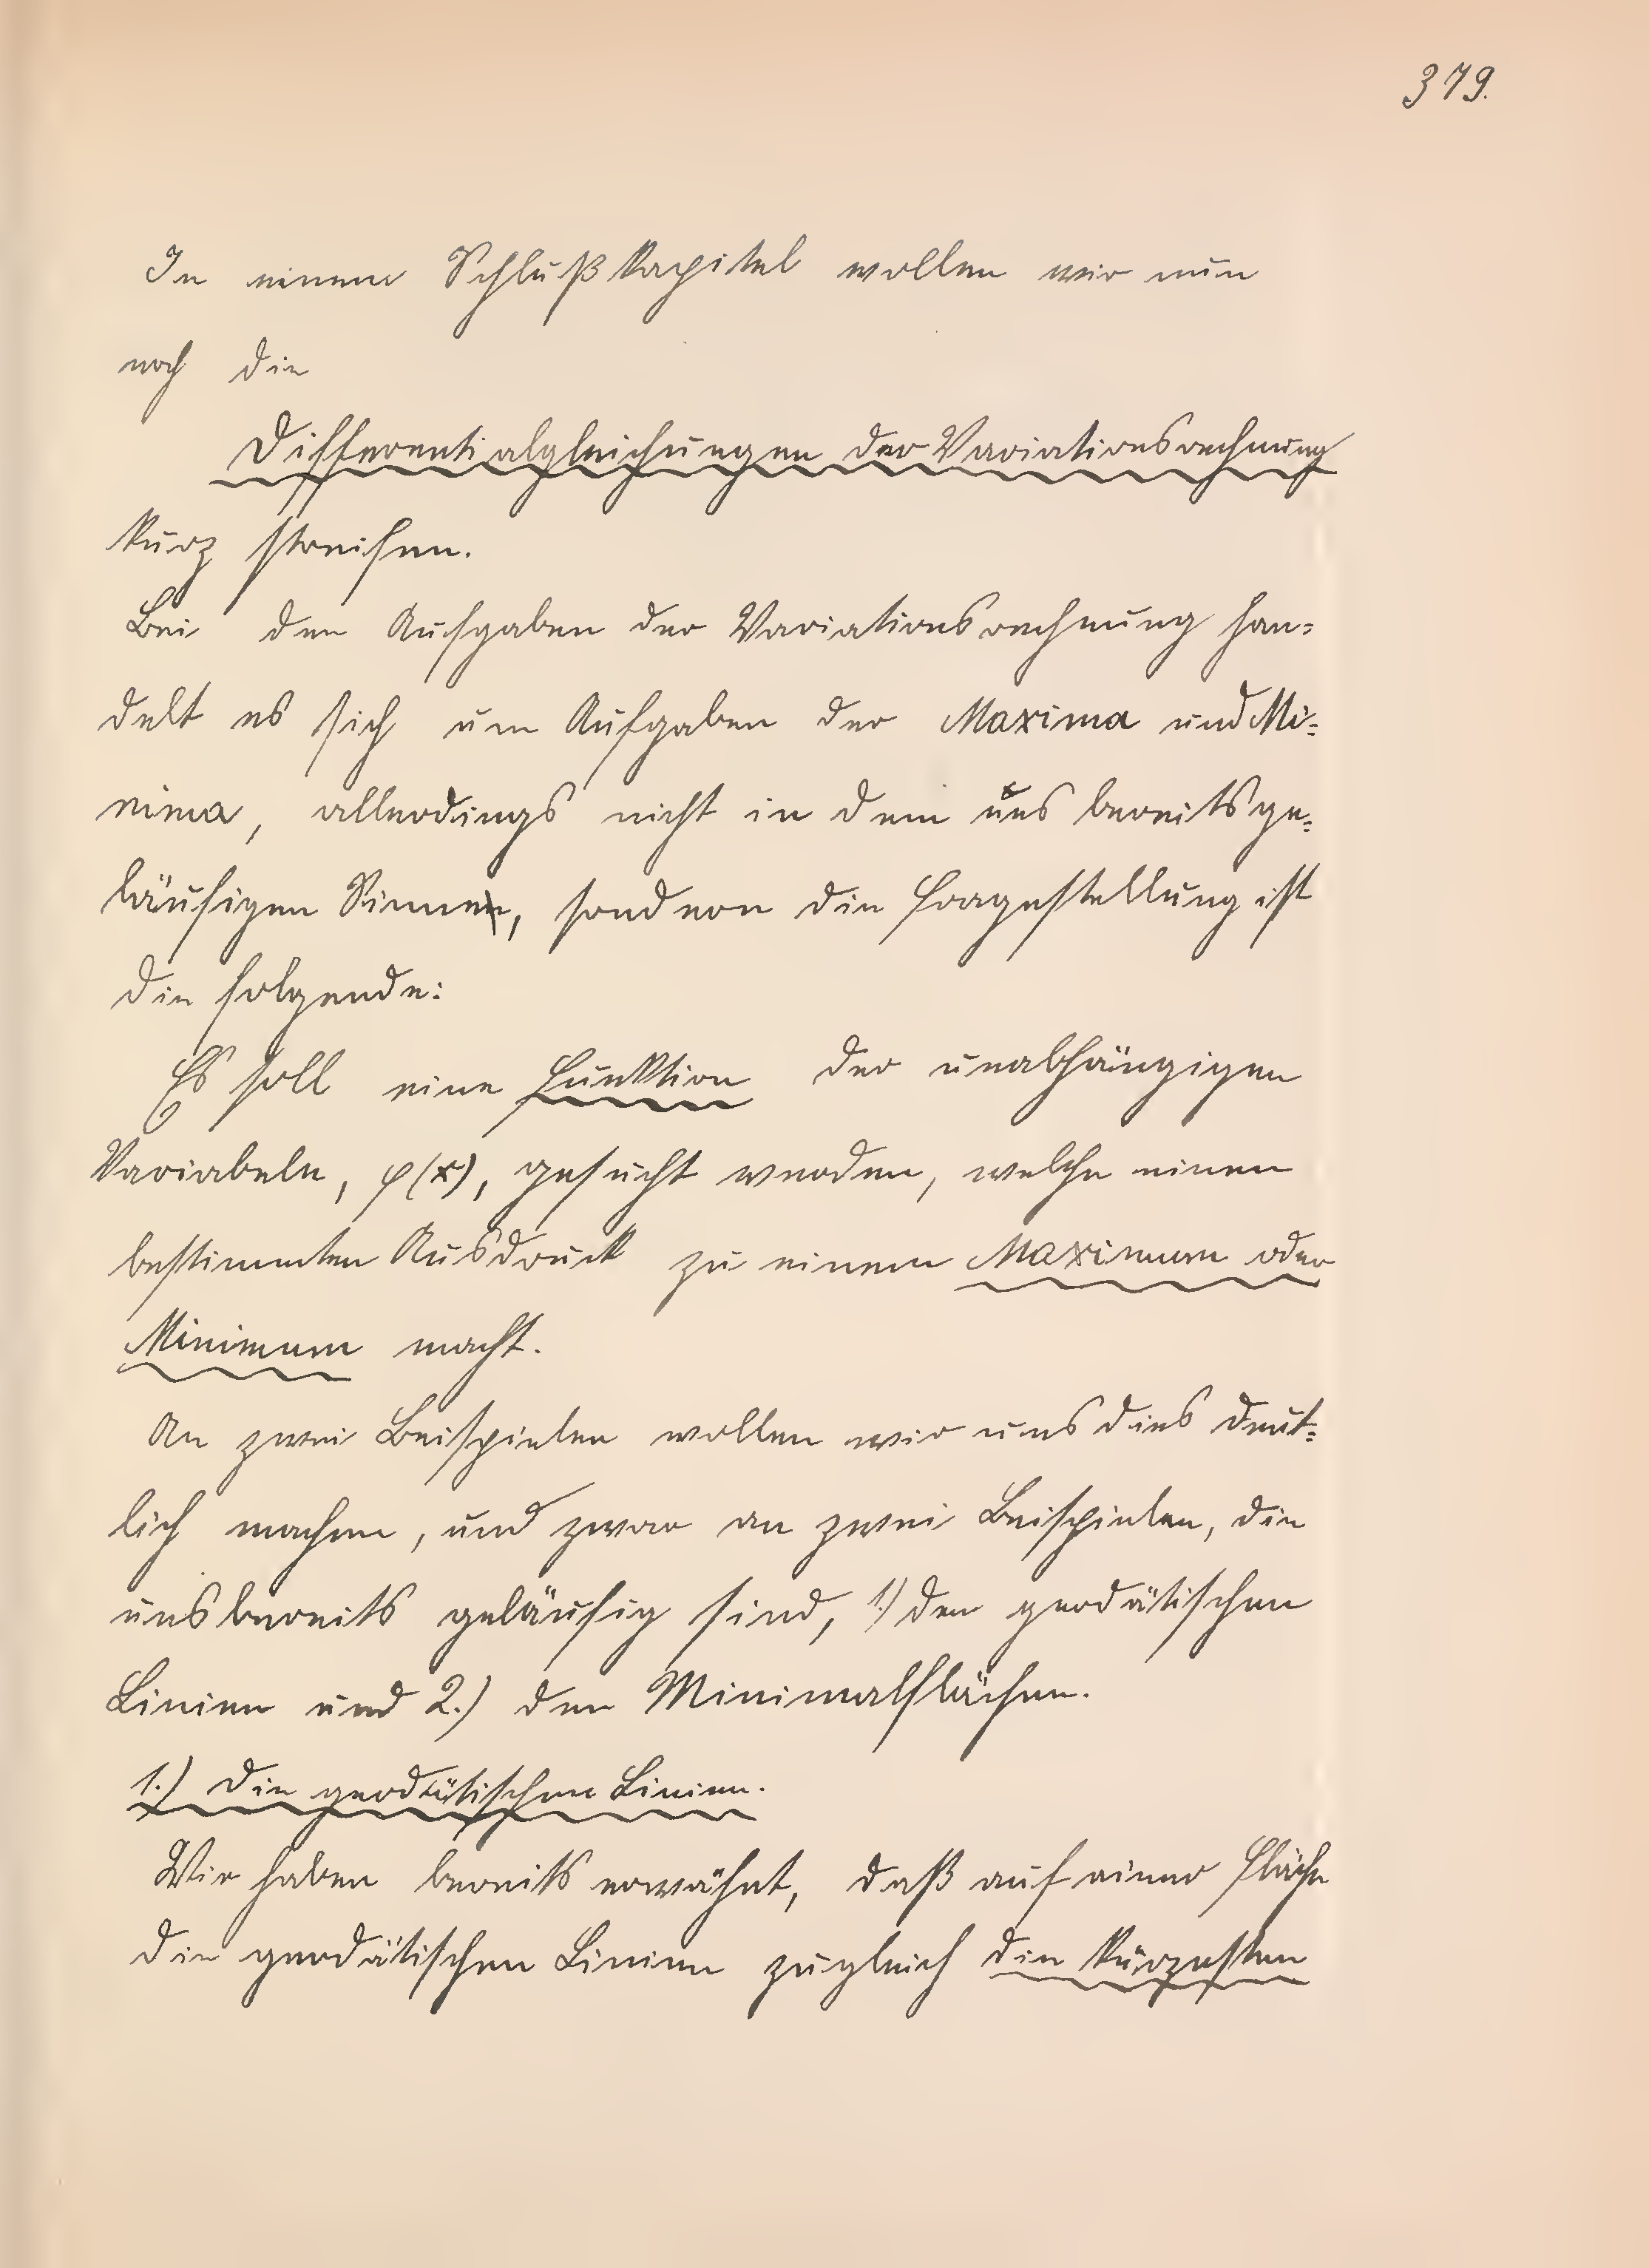 379.
In einem Schlußkapitel wollen wir nun
noch die
Differentialgleichungen der Variationsrechnung
kurz streifen.
Bei den Aufgaben der Variationsrechnung han=
delt es sich um Aufgaben der Maxima und Mi=
nima, allerdings nicht in dem uns bereits ge=
läufigen Sinne, sondern die Fragestellung ist
die folgende:
Es soll eine Funktion der unabhängigen
Variabeln, φ(x), gesucht werden, welche einen
bestimmten Ausdruck zu einem Maximum oder
Minimum macht.
An zwei Beispielen wollen wir uns dies deut=
lich machen, und zwar an zwei Beispielen, die
uns bereits geläufig sind, 1.) den geodätischen
Linien und 2.) den Minimalflächen.
1.) Die geodätischen Linien.
Wir haben bereits erwähnt, daß auf einer Fläche
die geodätischen Linien zugleich die kürzesten